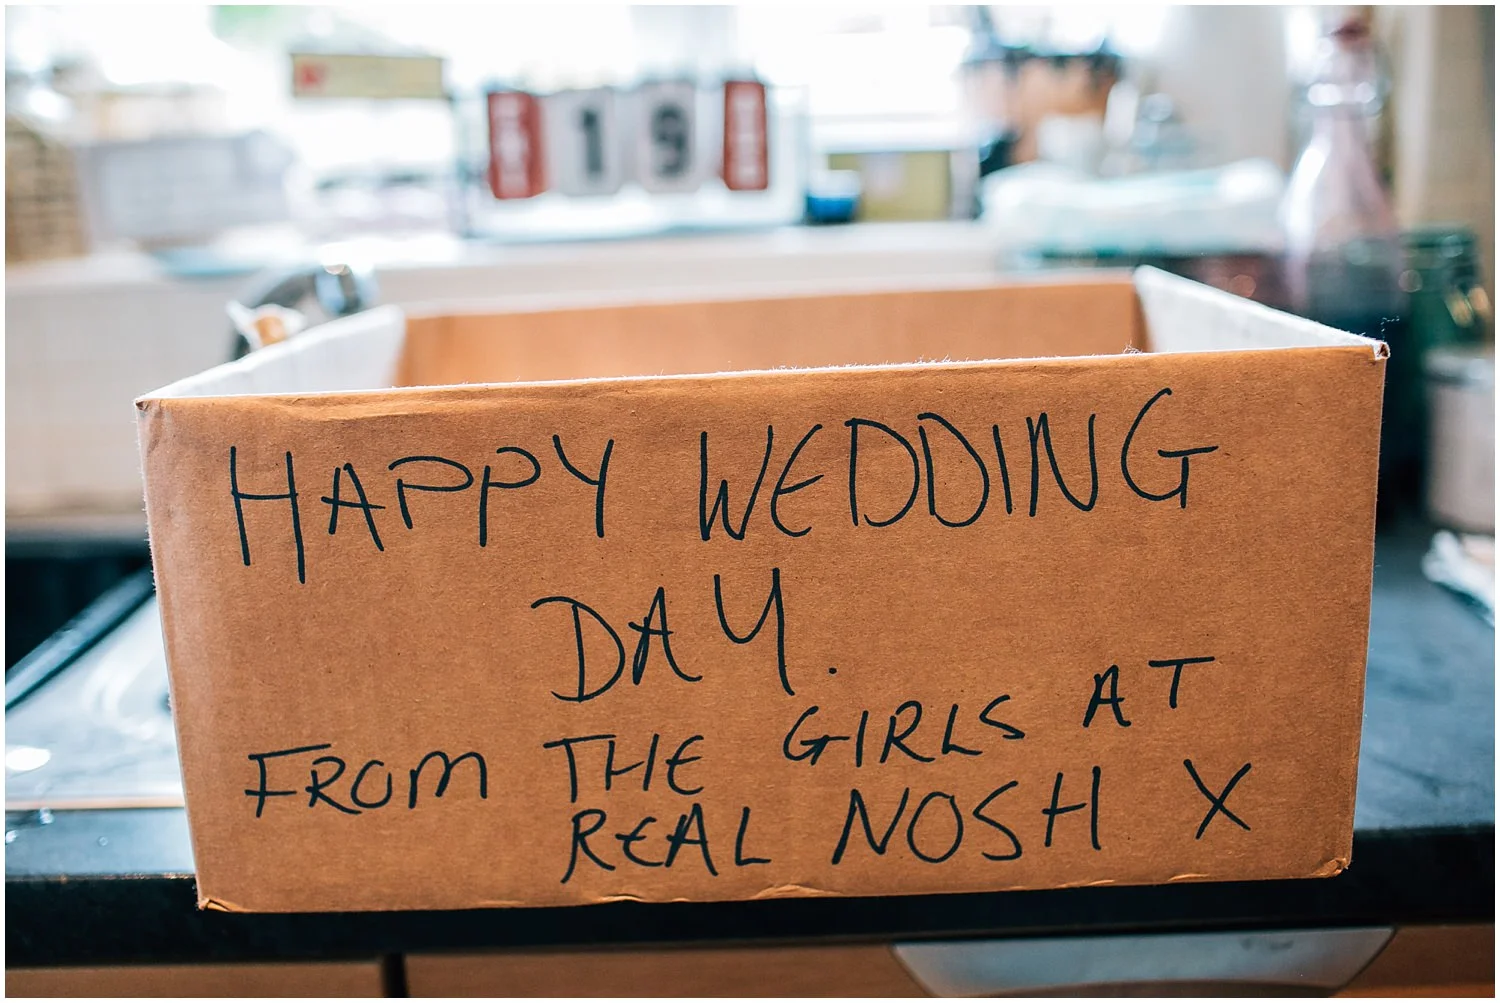 19
HAPPY WEDDING
DAY.
FROM THE GIRLS AT
REAL NOSH X